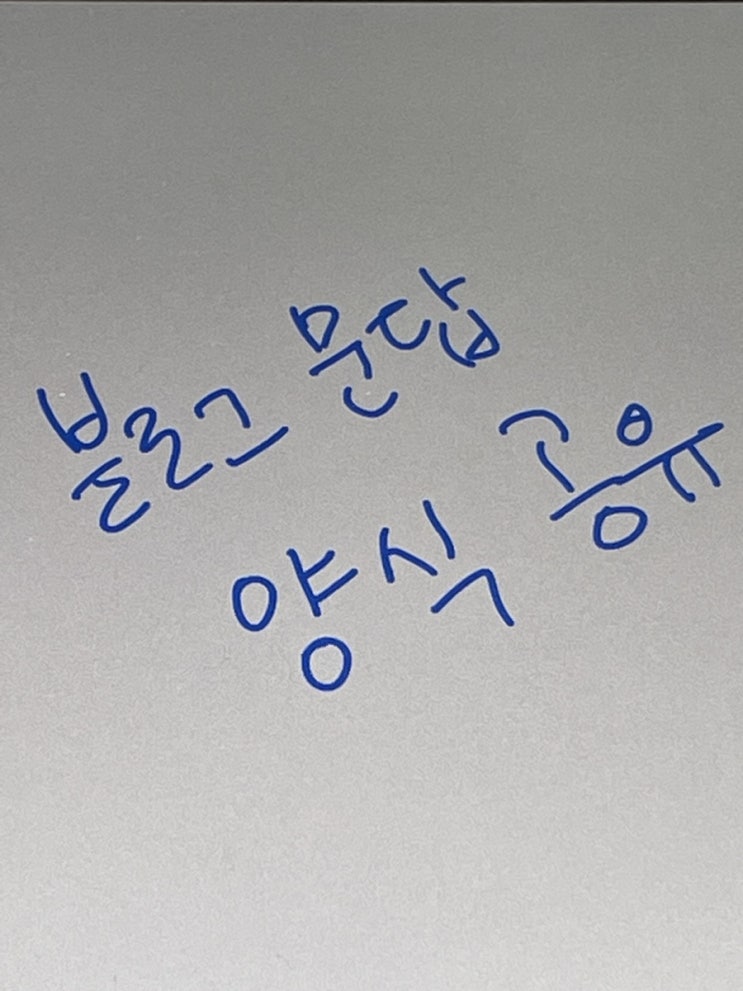 블로그 문답
양식 공유